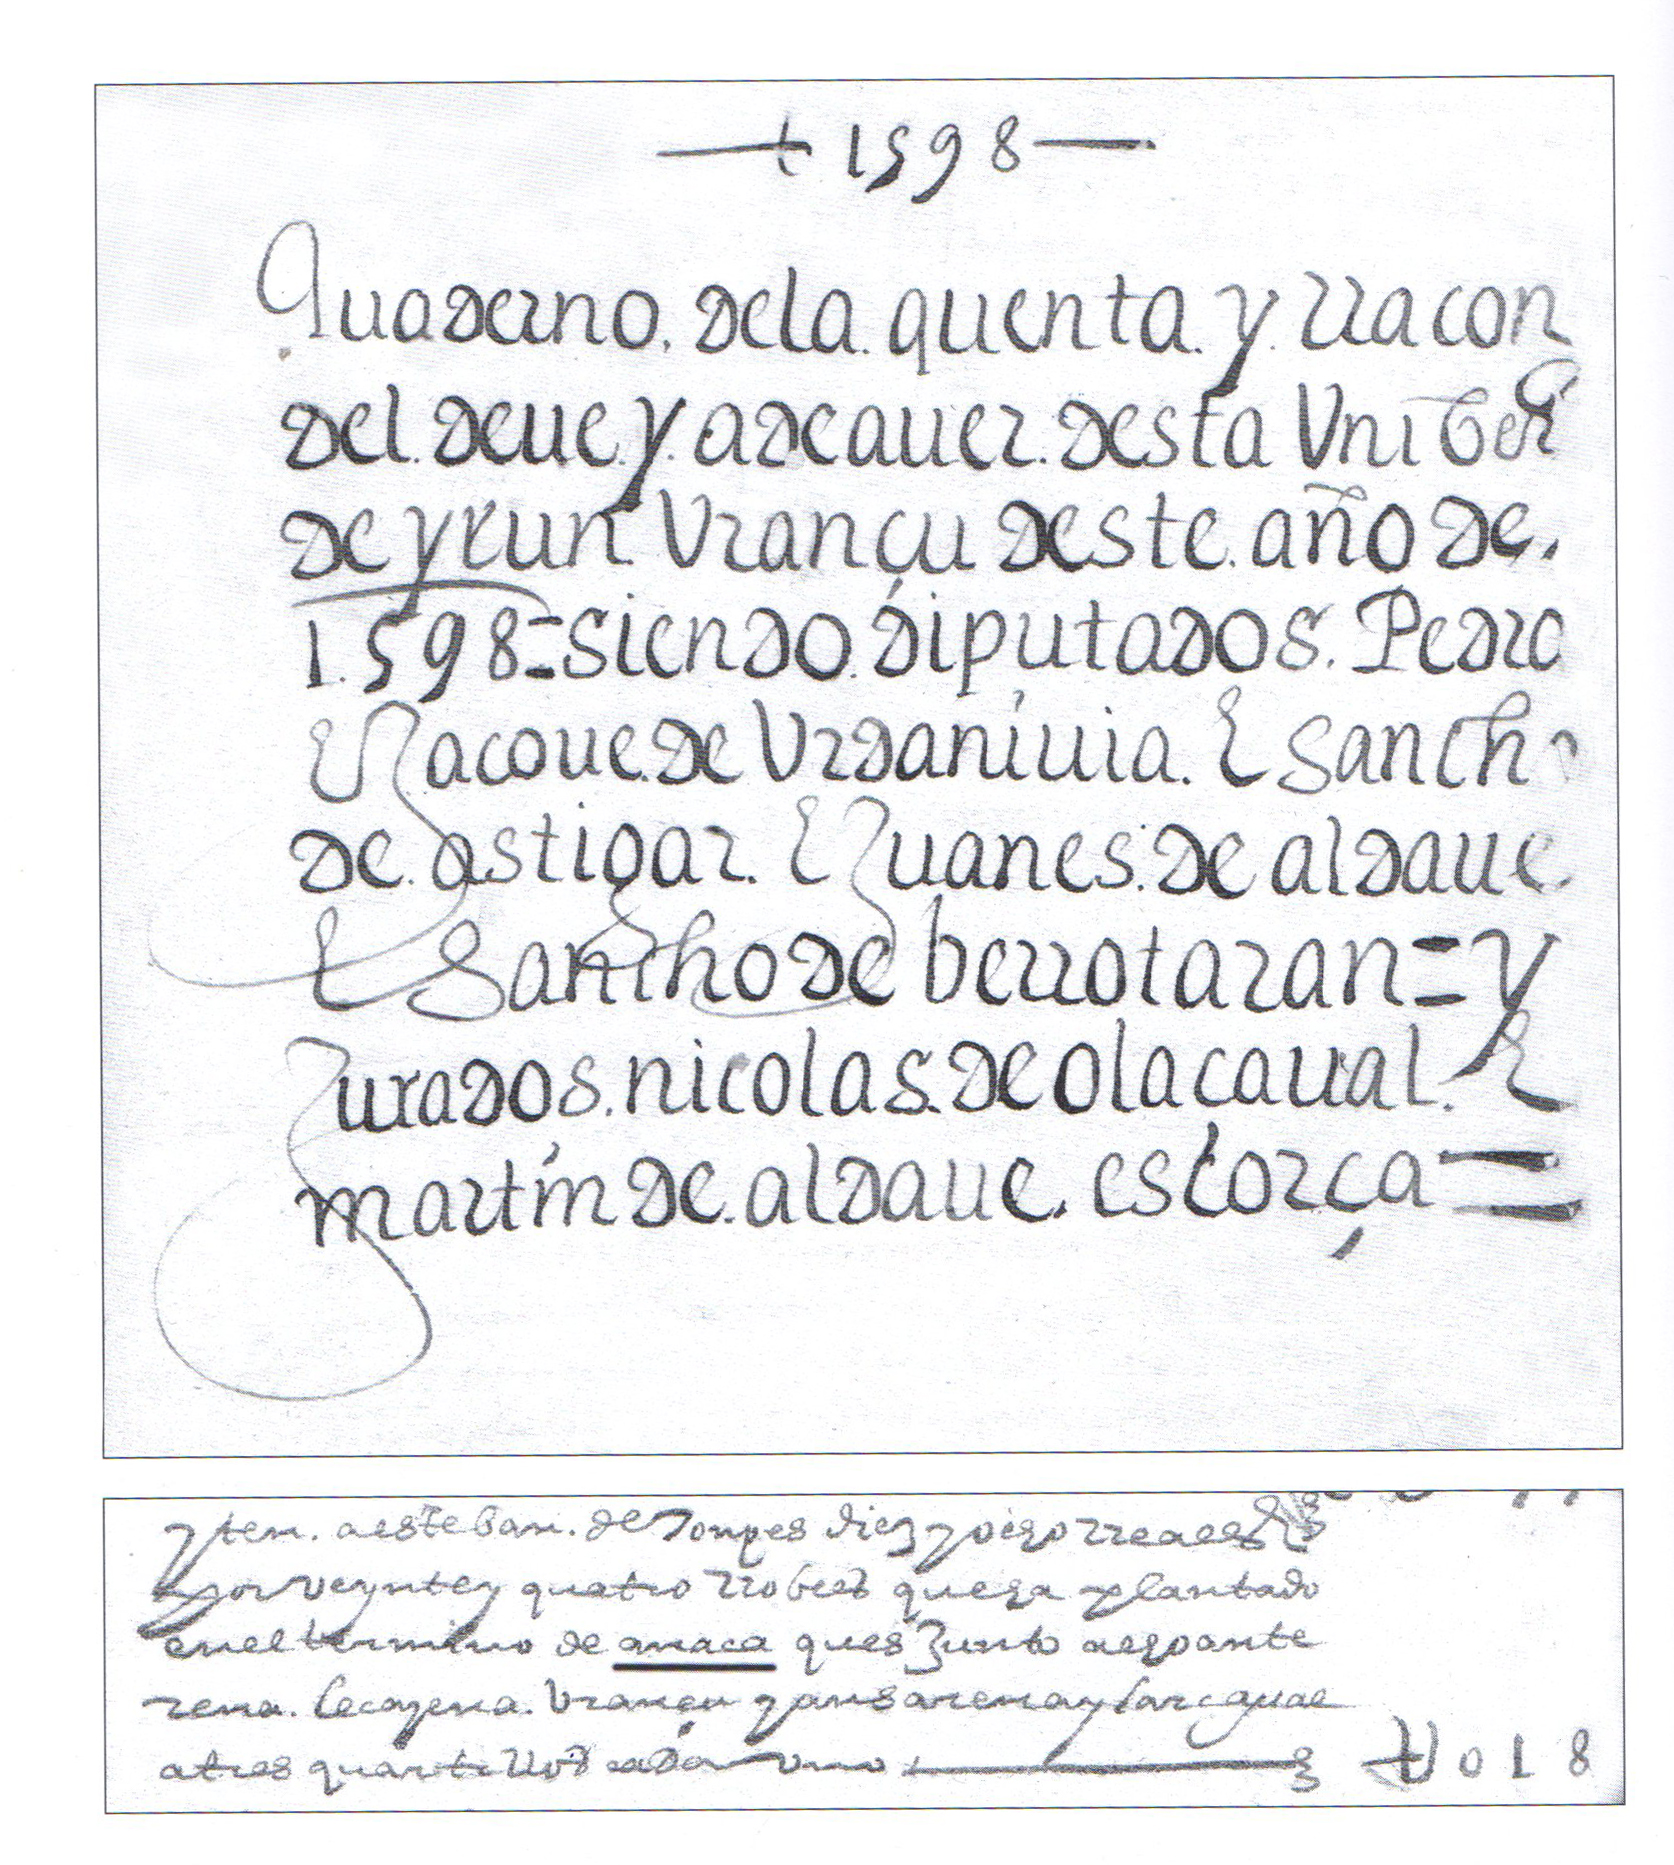 † 1598
Quaderno. dela. quenta. y. rracon
del. deue. y. adeauer. desta Vniber
de yrun. Vrançu deste. año de.
1598=siendo. diputados. Pedro
E Jacoue. de Vrdaniuia. E Sancho
de. astigar. E Juanes. de aldaue.
E Sancho de berrotaran = y
Jurados. nicolas. de olacaual. E
martin de. aldaue. estorça =
yten. aesteban. de diez y ocho rreales
por veyntey quatro rrobles quesa plantado
enel termino de anaca ques Junto
rena. Vrançu
atres quartillos cada vno U018